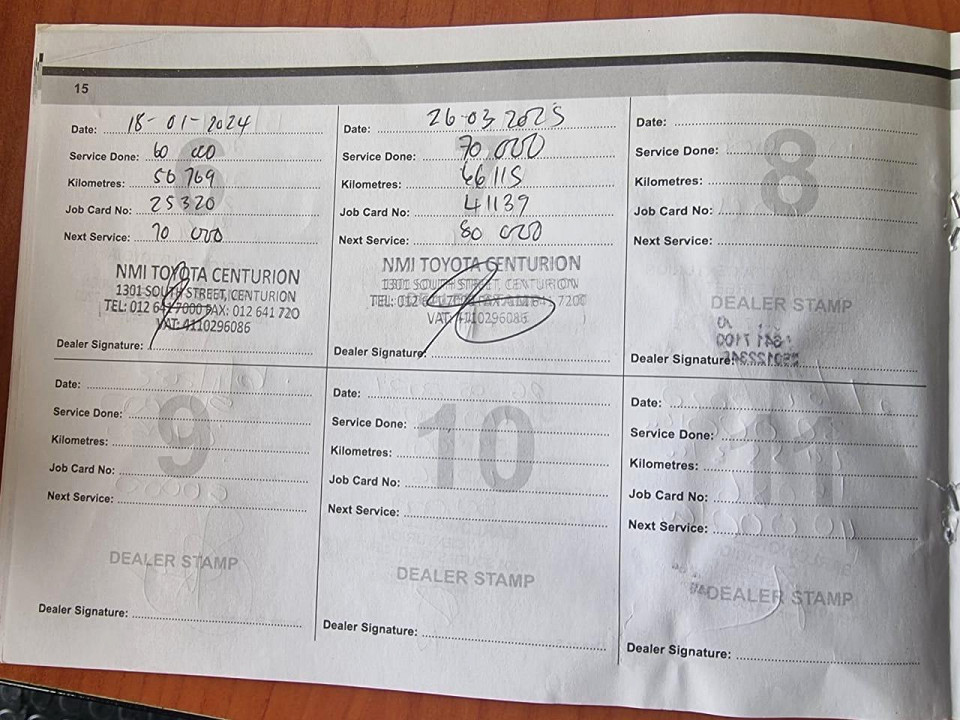 15
Date: 18-01-2024
Service Done: 60 000
Kilometres: 56 769
Job Card No: 25320
Next Service: 70 000
NMI TOYOTA CENTURION
1301 SOUTH STREET, CENTURION
TEL: 012 641 7000 FAX: 012 641 720
VAT: 4110296086
Dealer Signature:
Date: 26-03 2025
Service Done: 70 000
Kilometres: 66115
Job Card No: 41139
Next Service: 80 000
NMI TOYOTA CENTURION
1301 SOUTH STREET, CENTURION
TEL: 012 641 7000 FAX: 012 641 7200
VAT: 4110296086
Dealer Signature:
8
Date:
Service Done:
Kilometres:
Job Card No:
Next Service:
DEALER STAMP
Dealer Signature:
9
Date:
Service Done:
Kilometres:
Job Card No:
Next Service:
DEALER STAMP
Dealer Signature:
10
Date:
Service Done:
Kilometres:
Job Card No:
Next Service:
DEALER STAMP
Dealer Signature:
11
Date:
Service Done:
Kilometres:
Job Card No:
Next Service:
DEALER STAMP
Dealer Signature: